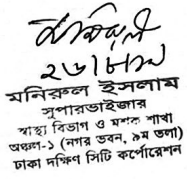 ২৬।৮।১৯
মনিরুল ইসলাম
সুপারভাইজার
স্বাস্থ্য বিভাগ ও মশক শাখা
অঞ্চল-১ (নগর ভবন, ৯ম তলা)
ঢাকা দক্ষিণ সিটি কর্পোরেশন